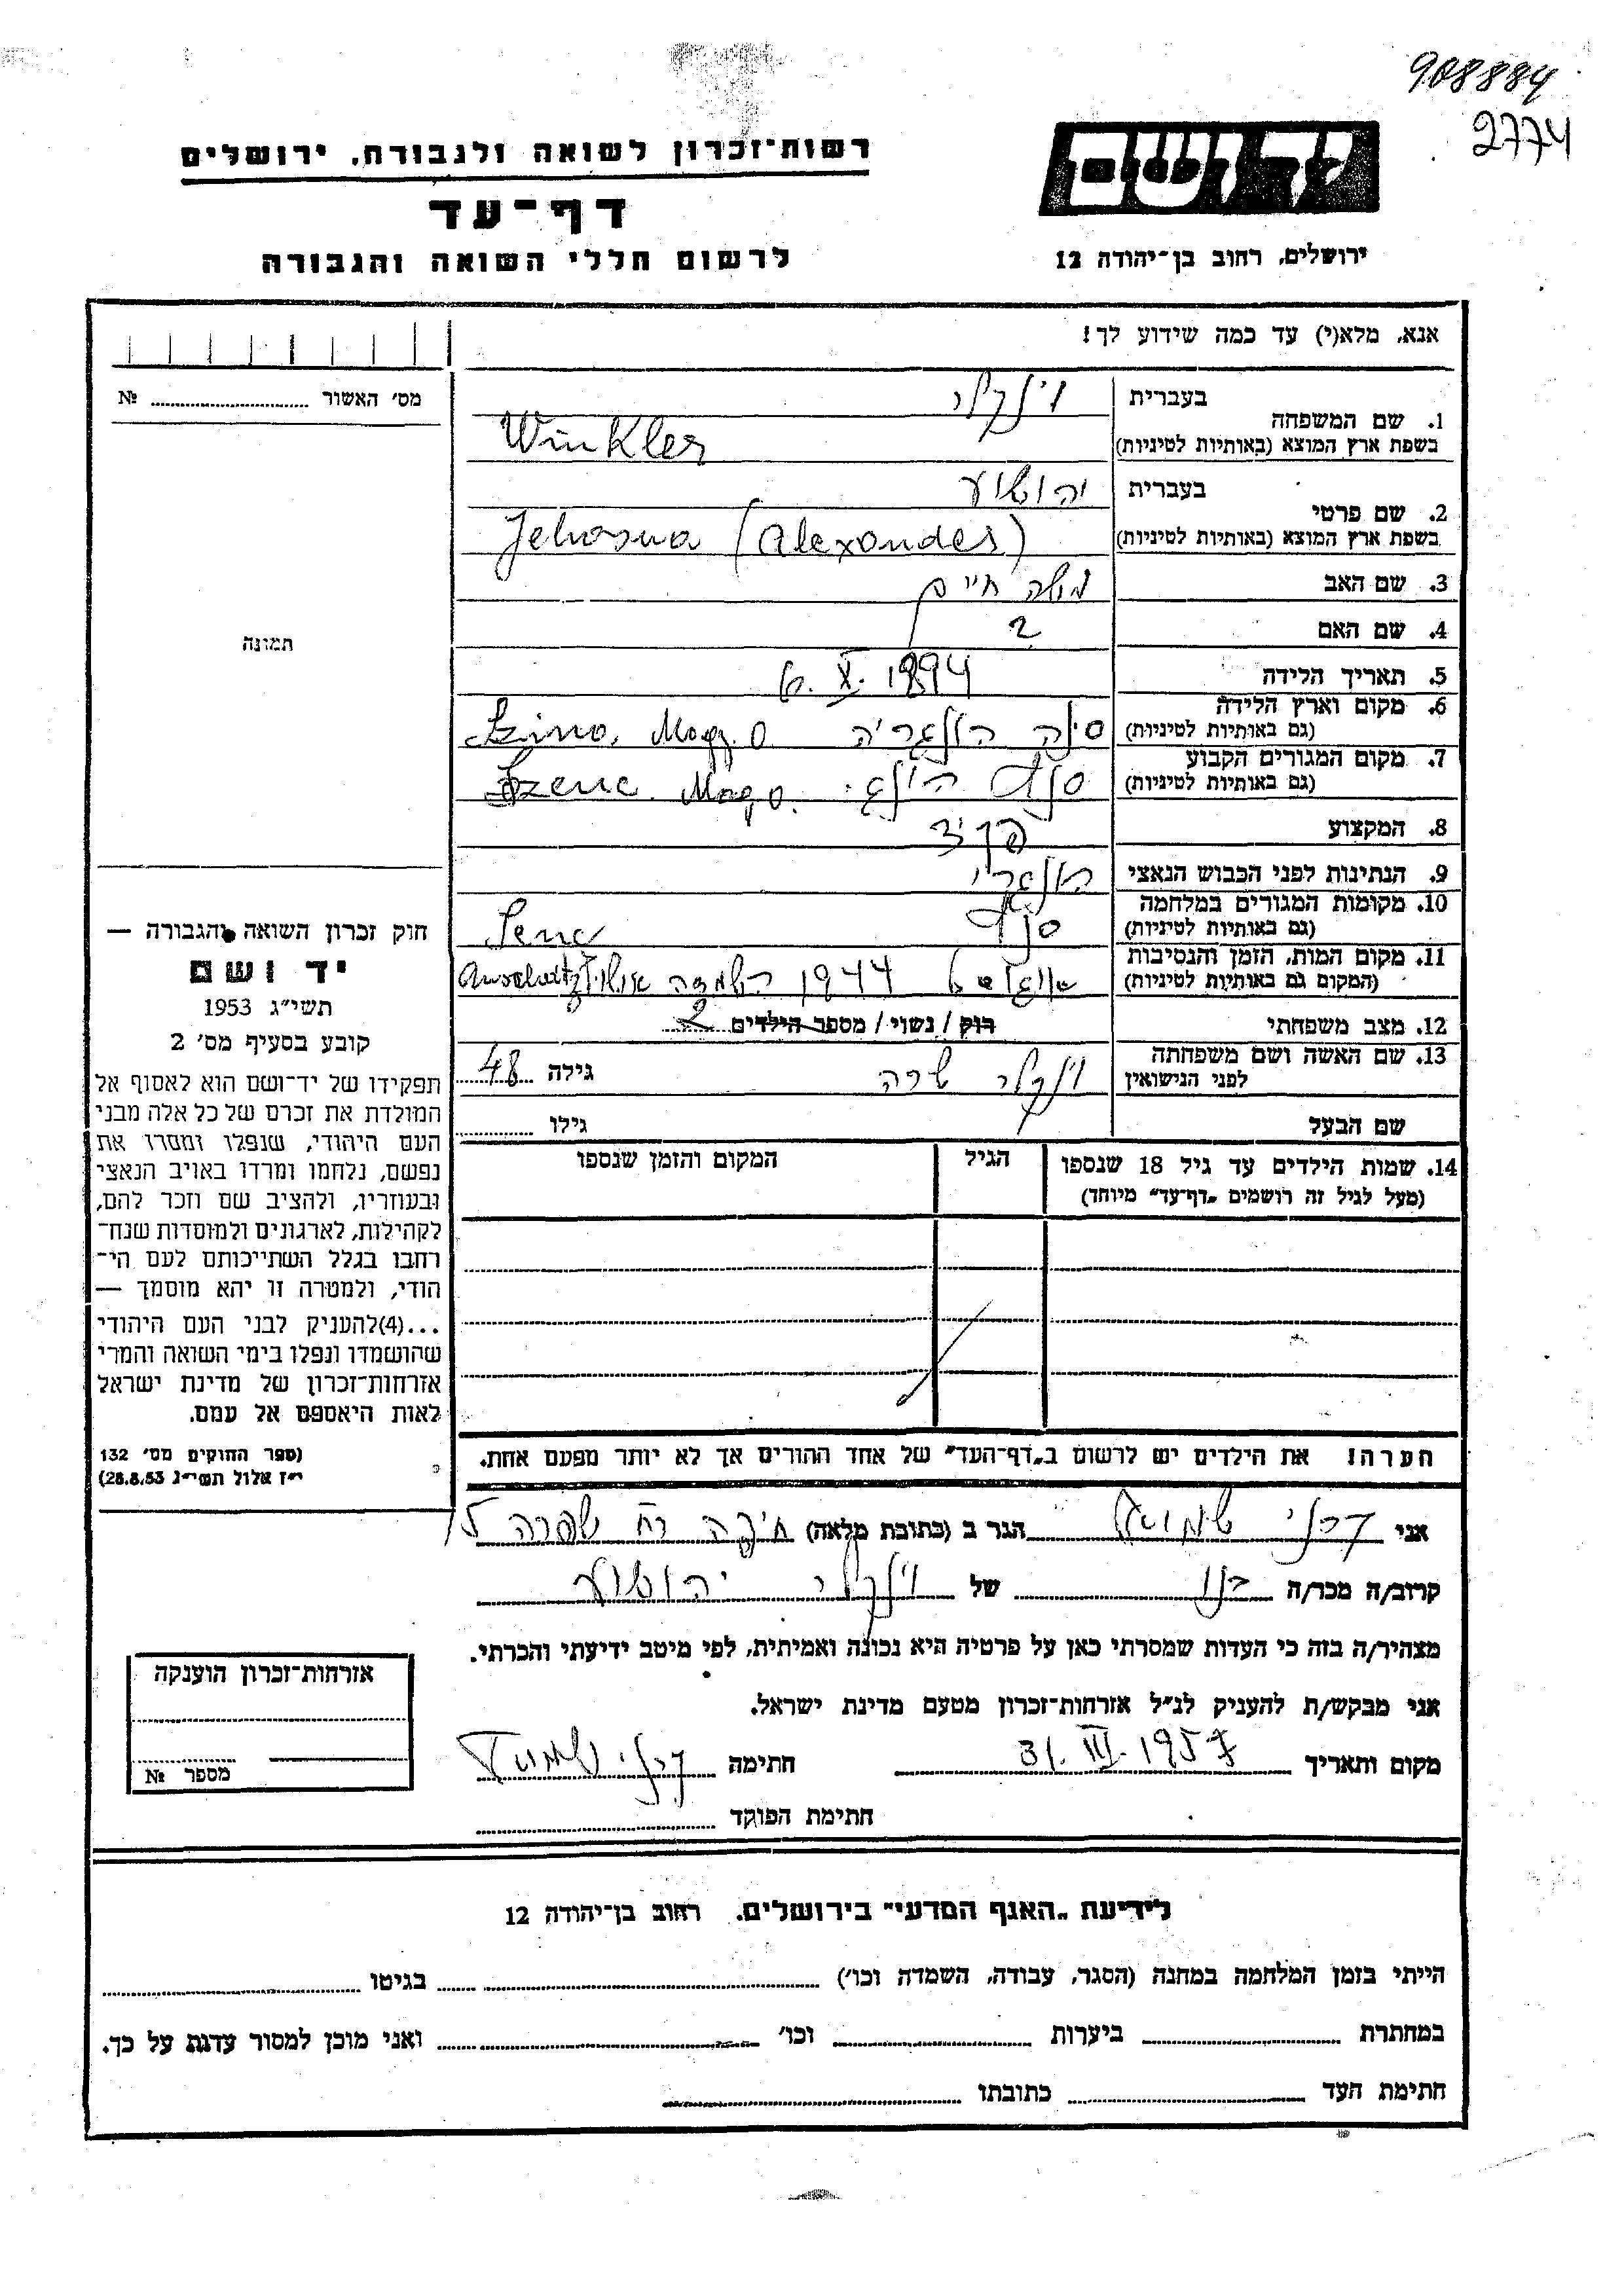 908884
2774
יד ושם
ירושלים, רחוב בן־יהודה 12
רשות־זכרון לשואה ולגבורה, ירושלים
דף־עד
לרשום חללי השואה והגבורה
אנא, מלא(י) עד כמה שידוע לך!
1. שם המשפחה בעברית וינקלר
בשפת ארץ המוצא (באותיות לטיניות) Winkler
2. שם פרטי בעברית יהושוע
בשפת ארץ המוצא (באותיות לטיניות) Jehosua (Alexander)
3. שם האב משה חיים
4. שם האם ?
5. תאריך הלידה 6. X. 1894
6. מקום וארץ הלידה
(גם באותיות לטיניות) הונגריה
7. מקום המגורים הקבוע
(גם באותיות לטיניות)
8. המקצוע
9. הנתינות לפני הכבוש הנאצי הונגרי
10. מקומות המגורים במלחמה
(גם באותיות לטיניות) Senc
11. מקום המות, הזמן והנסיבות
(המקום גם באותיות לטיניות) 1944 השמדה
12. מצב משפחתי רוק / נשוי / מספר הילדים 2
13. שם האשה ושם משפחתה
לפני הנישואין וינקלר שרה גילה 48
שם הבעל גילו
14. שמות הילדים עד גיל 18 שנספו
(מעל לגיל זה רושמים „דף־עד" מיוחד)
הגיל
המקום והזמן שנספו
הערה! את הילדים יש לרשום ב„דף־העד" של אחד ההורים אך לא יותר מפעם אחת.
מס׳ האשור № 
תמונה
חוק זכרון השואה והגבורה —
יד ושם
תשי״ג 1953
קובע בסעיף מס׳ 2
תפקידו של יד־ושם הוא לאסוף אל
המולדת את זכרם של כל אלה מבני
העם היהודי, שנפלו ומסרו את
נפשם, נלחמו ומרדו באויב הנאצי
ובעוזריו, ולהציב שם וזכר להם,
לקהילות, לארגונים ולמוסדות שנח־
רבו בגלל השתייכותם לעם הי־
הודי, ולמטרה זו יהא מוסמך —
...(4)להעניק לבני העם היהודי
שהושמדו ונפלו בימי השואה והמרי
אזרחות־זכרון של מדינת ישראל
לאות היאספם אל עמם.
(ספר החוקים מס׳ 132
י״ז אלול תשי״ג 28.8.53)
אני שמואל הגר ב (כתובת מלאה) חיפה רח שפרה 15
קרוב/ה מכר/ה בנו של וינקלר יהושוע
מצהיר/ה בזה כי העדות שמסרתי כאן על פרטיה היא נכונה ואמיתית, לפי מיטב ידיעתי והכרתי.
אני מבקש/ת להעניק לנ״ל אזרחות־זכרון מטעם מדינת ישראל.
מקום ותאריך 31. III. 1957 חתימה
חתימת הפוקד
אזרחות־זכרון הוענקה
מספר №
לידיעת „האגף המדעי" בירושלים, רחוב בן־יהודה 12
הייתי בזמן המלחמה במחנה (הסגר, עבודה, השמדה וכו׳) בגיטו
במחתרת ביערות וכו׳ ואני מוכן למסור עדות על כך.
חתימת העד כתובתו